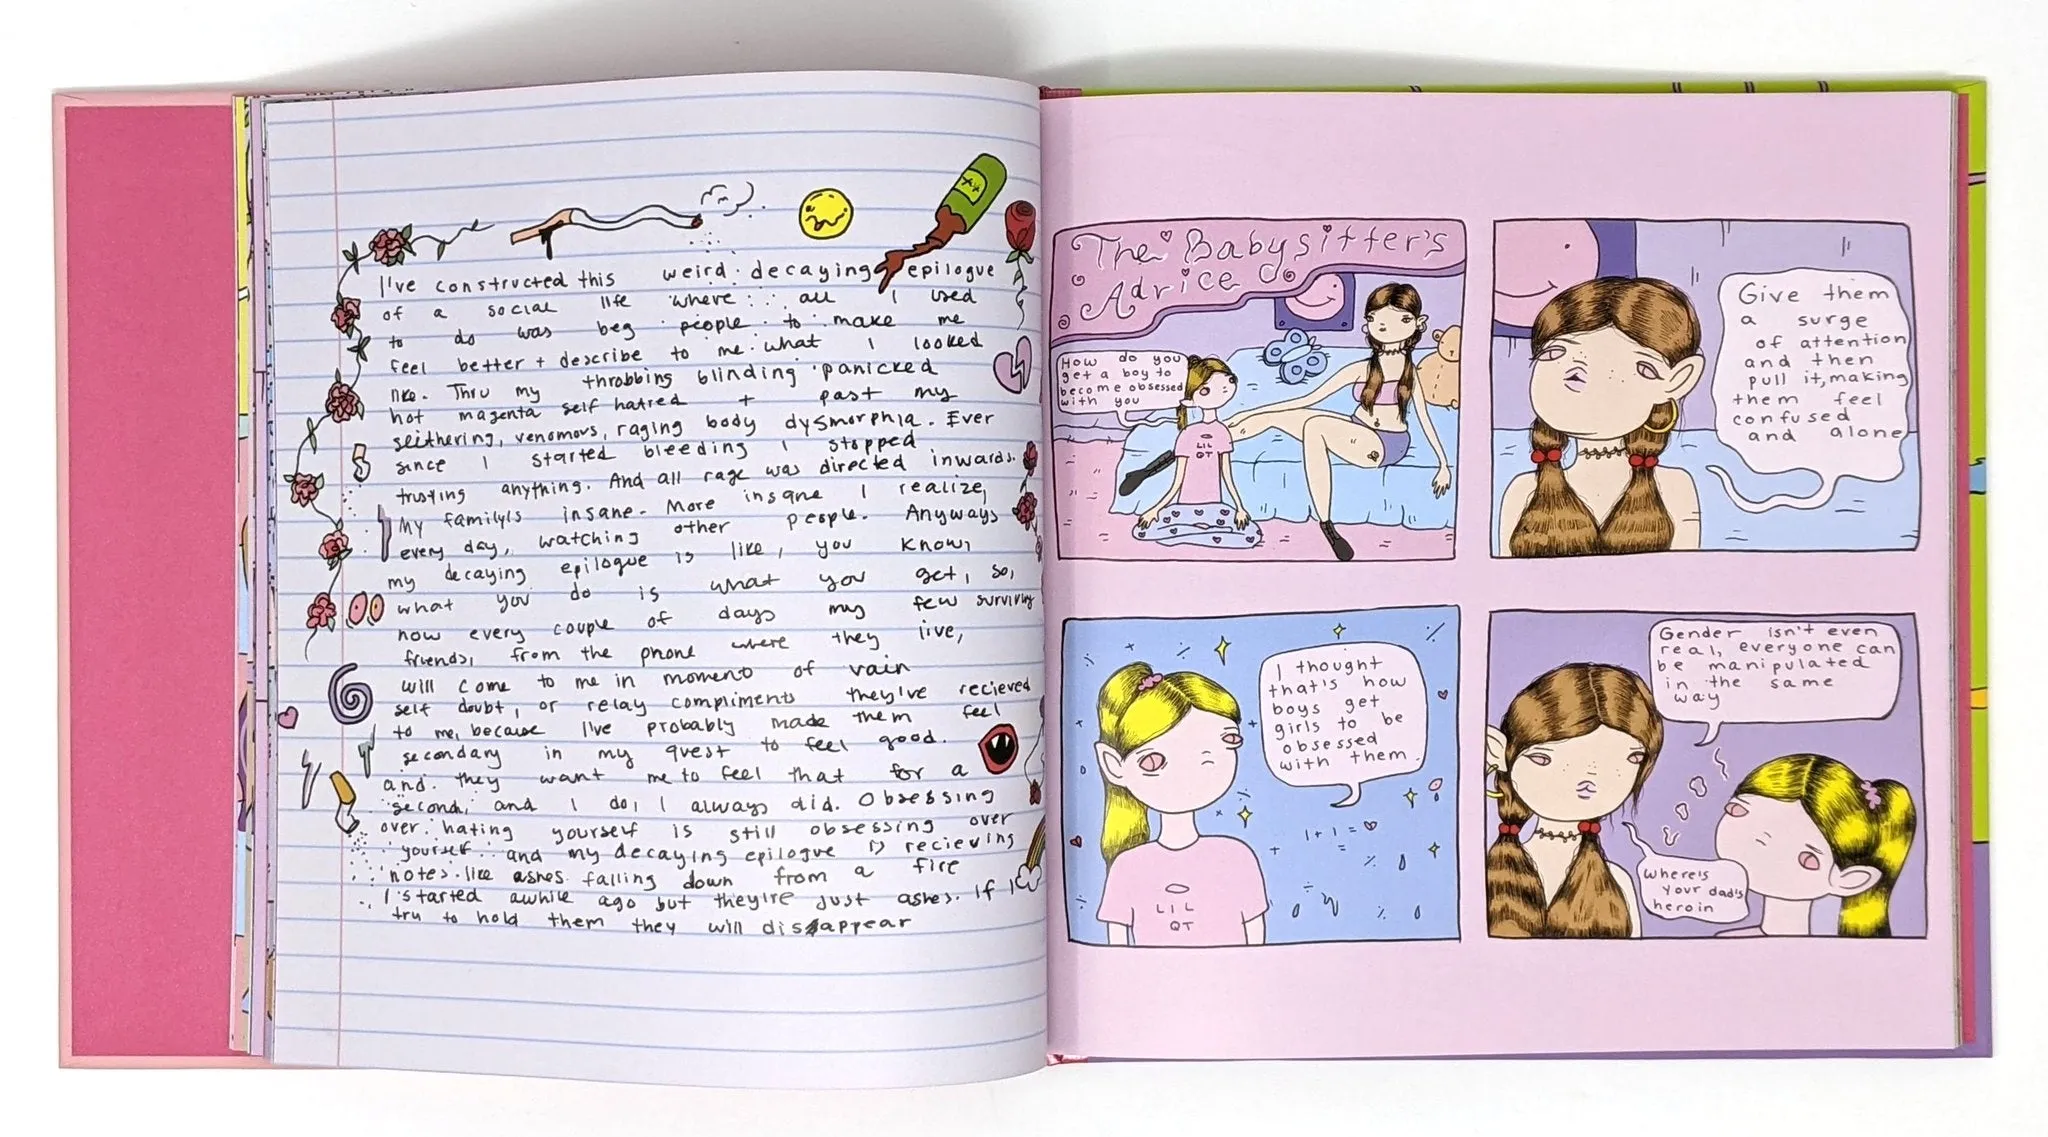 I've constructed this weird decaying epilogue
of a social life where all I used
to do was beg people to make me
feel better + describe to me what I looked
like. Thru my throbbing blinding panicked
hot magenta self hatred + past my
seithering, venomous, raging body dysmorphia. Ever
since I started bleeding I stopped
trusting anything. And all rage was directed inwards.
My family's insane. More insane I realize,
every day, watching other people. Anyways
my decaying epilogue is like, you know,
what you do is what you get, so,
now every couple of days my few surviving
friends, from the phone where they live,
will come to me in moments of vain
self doubt, or relay compliments they've recieved
to me, because I've probably made them feel
secondary in my quest to feel good.
and they want me to feel that for a
second, and I do, I always did. Obsessing
over hating yourself is still obsessing over
yourself and my decaying epilogue is recieving
notes like ashes falling down from a fire
I started awhile ago but they're just ashes. If I
try to hold them they will disappear
The Babysitter's
Advice
How do you
get a boy to
become obsessed
with you
LIL
QT
Give them
a surge
of attention
and then
pull it, making
them feel
confused
and alone
I thought
that's how
boys get
girls to be
obsessed
with them.
1+1=
LIL
QT
Gender isn't even
real, everyone can
be manipulated
in the same
way
where's
your dad's
heroin